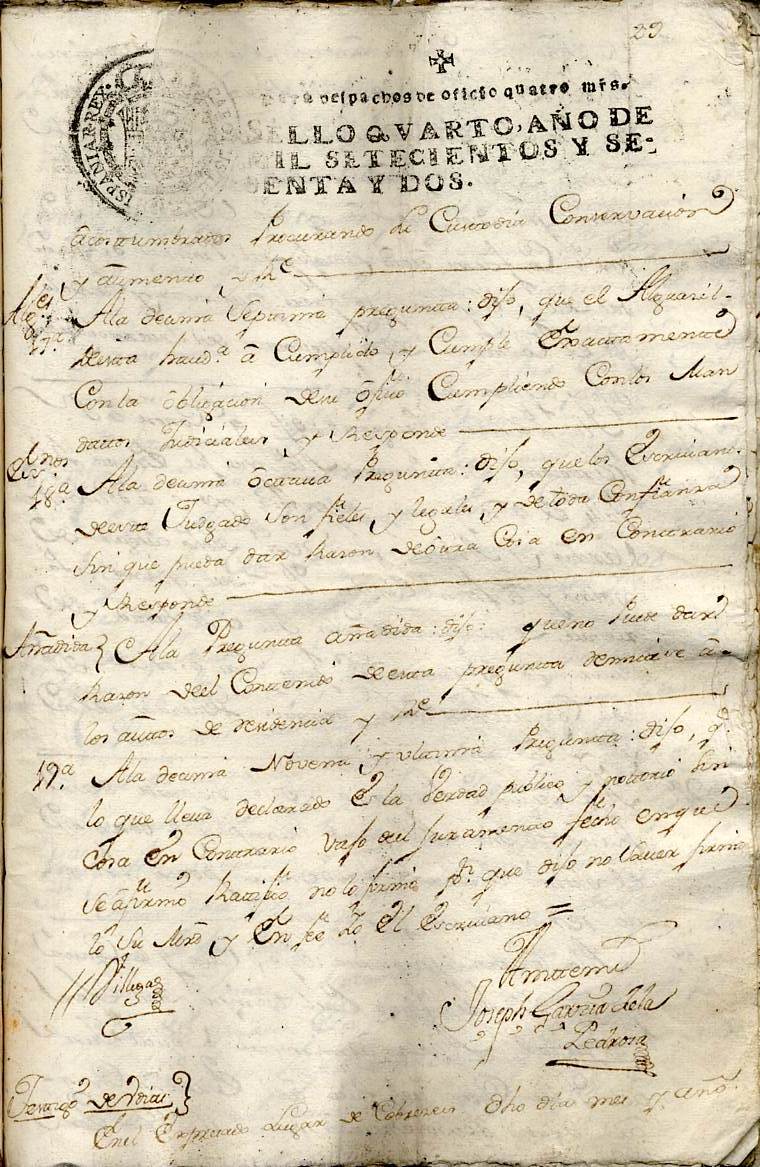 29
para despachos de oficio quatro mrs.
SELLO QVARTO, AÑO DE
MIL SETECIENTOS Y SE-
ENTA Y DOS.
ISPANIAR·REX·
acostumbrados Procurando su Custodia Conservación
y aumento, y Re
17.ª
Ala decima Septima pregunta: dijo, que el Alguasil
de esta haud.ª á Cumplido, y Cumple Exactamente
Con la obligacion de su ofiio Cumpliendo Con los Man
datos Judiciales y Responde
Essnos
18ª
Ala decima octava Pregunta: dijo, que los Escrivano.
de este Judgado Son fieles, y legales, y de toda Confianza
sin que pueda dar Razon de otra Cosa en Contrario
y Responde
Añadida
Ala Pregunta añadida: dijo: que no Puede dar
Razon deel Contenido de esta pregunta á
los autos de residencia y Re
19ª
Ala decima Novena, y ultima Pregunta: dijo, q.
lo que lleva declarado Es la Verdad publico y notorio sin
Cosa en Contrario Vajo del Juramento fecho en que
Se afirmo Ratifico no lo firmo pr. que dijo no Saver firmo
lo Su Mrd y En fee de Ello el Escrivano =
Villegas
Antemi
Joseph Garzia de la
Pedrosa
Testigo
En el Expresado Lugar de Cobreces dho dia mes y año.